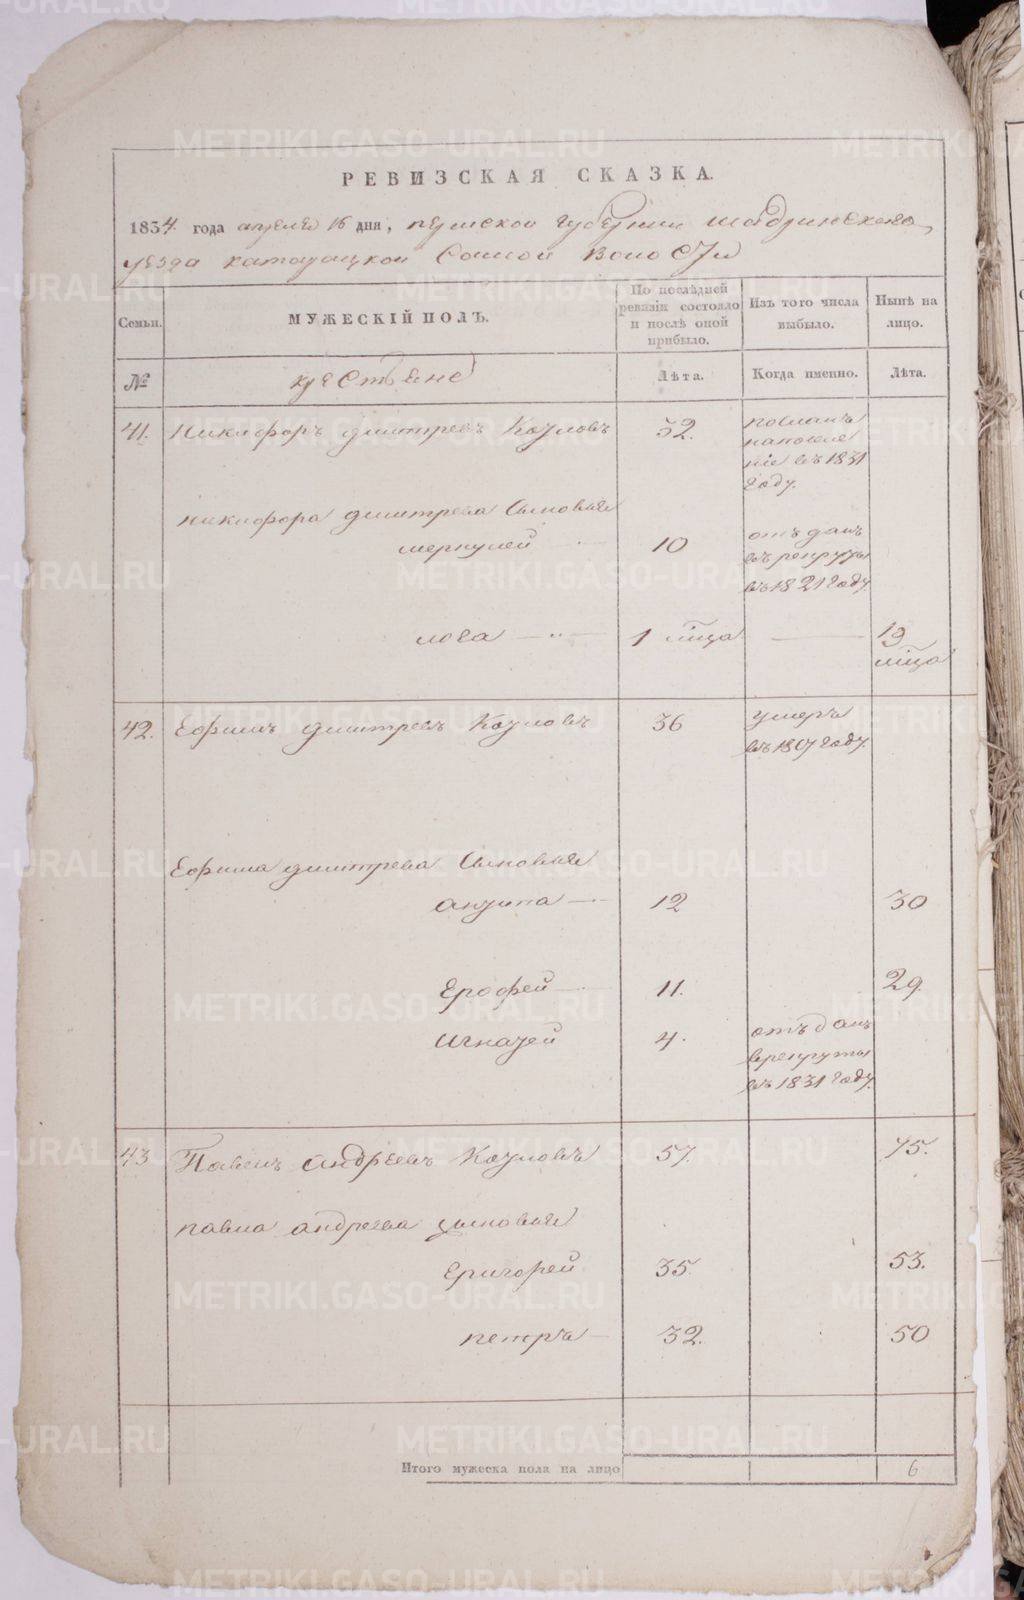 РЕВИЗСКАЯ СКАЗКА.
1834 года апреля 16 дня, пермской губернии шадринскаго
уезда катайцкой Самой волости
Семьи.
МУЖЕСКІЙ ПОЛЪ.
По послѣдней ревизіи состояло и послѣ оной прибыло.
Изъ того числа выбыло.
Нынѣ на лицо.
№
крестьяне
Лѣта.
Когда именно.
Лѣта.
41. Никифоръ дмитревъ Козловъ 32. посланъ
напоселе
ніе въ 1831
году.
никифора дмитрева Сыновья
меркулей 10 отъданъ
въ рекруты
въ 1821 году
лога 1 мѣца 19
мѣца
42. Ефимъ дмитревъ Козловъ 36 умеръ
въ 1807 году.
Ефима дмитрева Сыновья
анзипа 12 30
Ерофей 11. 29.
Игнатей 4. отъданъ
врекруты
въ 1831 году.
43 Павелъ андреевъ Козловъ 57. 75.
павла андреева сыновья
Григорей 35 53.
петръ 32. 50
Итого мужеска пола на лицо 6
METRIKI.GASO-URAL.RU